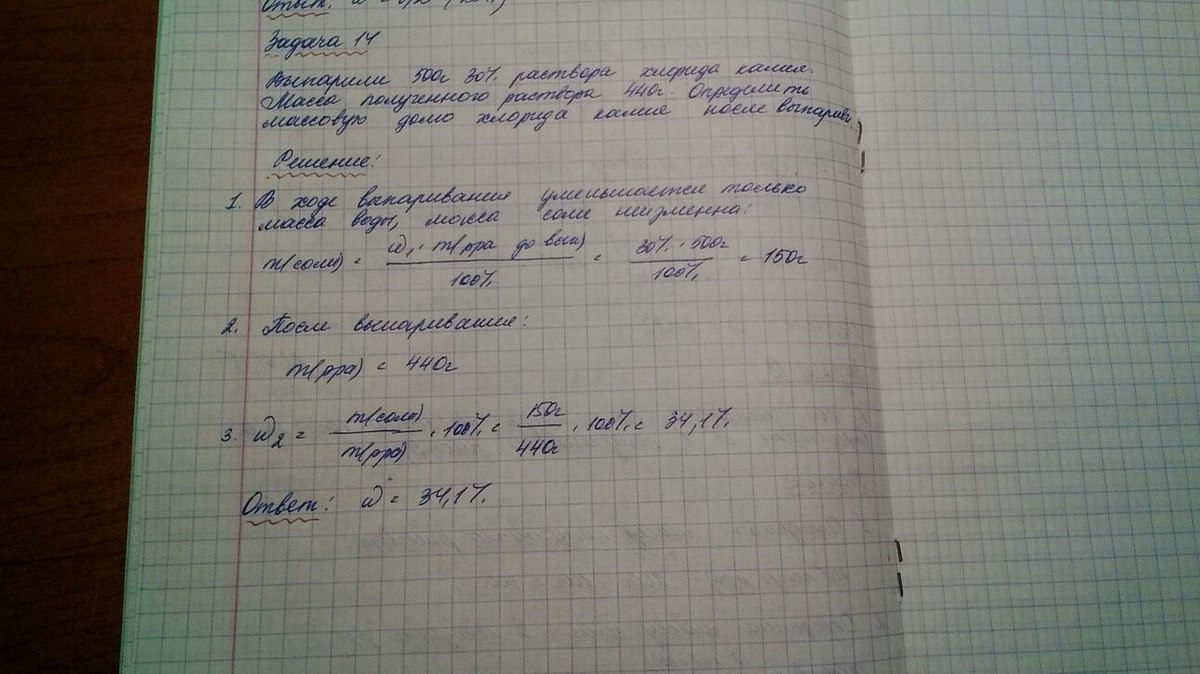 Ответ: ω =
Задача 14
Выпарили 500г 30% раствора хлорида калия.
Масса полученного раствора 440г. Определить
массовую долю хлорида калия после выпарив.
Решение:
1. В ходе выпаривания уменьшается только
масса воды, масса соли неизменна:
m(соли) = ω₁ · m(рра до вып) / 100% = 30% · 500г / 100% = 150г
2. После выпаривания:
m(рра) = 440г
3. ω₂ = m(соли) / m(рра) · 100% = 150г / 440г · 100% = 34,1%
Ответ: ω = 34,1%